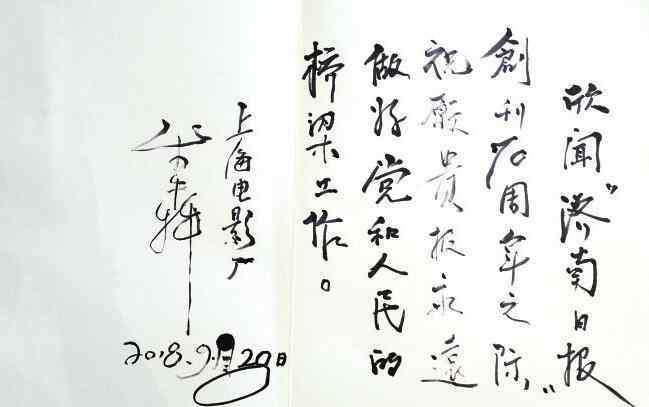 欣闻“濟南日报”
創刊70周年之际,
祝愿貴报永遠
做好党和人民的
桥梁工作。
上海电影厂
2018.9月29日